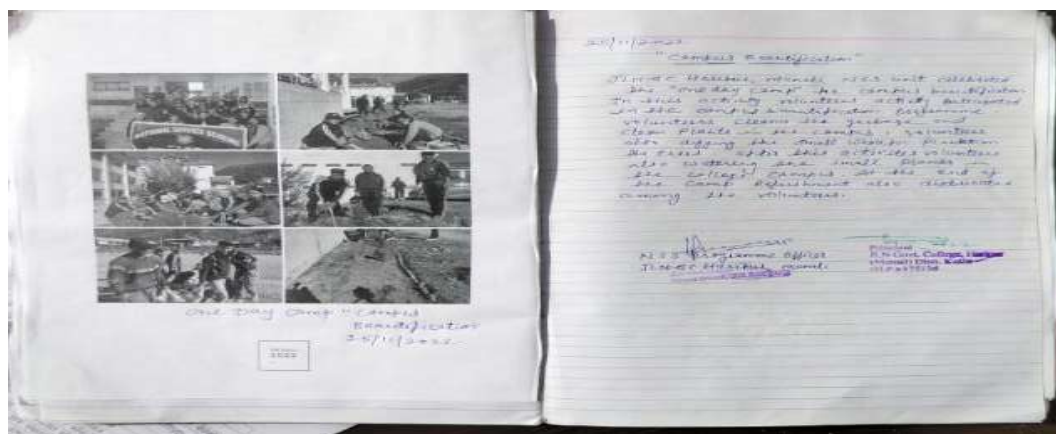 NATIONAL SERVICE SCHEME
One Day Camp "Campus
Beautification
25/11/2022
2022
25/11/2022
"Campus Beautification"
JLNGC Haripur, Manali NSS unit celebrated
the "One day Camp" for campus beautification
In this activity volunteers
in the campus beautification
volunteers cleans the garbage and
clean plants in the campus. volunteers
also digging the small
the trees. After this activities volunteers
also watering the small plants
the college campus. At the end of
the camp Refreshment also distributed
among the volunteers.
NSS Programme Officer
JLNGC Haripur Manali
Principal
JLN Govt. College, Haripur
(Manali) Distt. Kullu